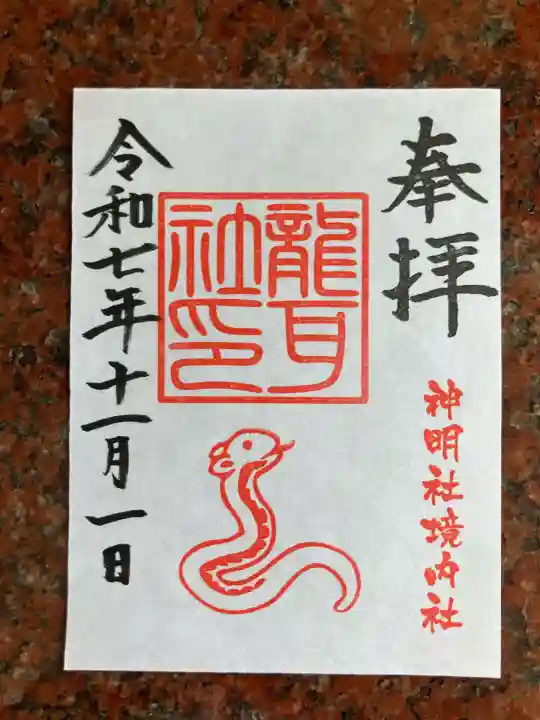 奉拝
神明社境内社
龍耳
社印
令和七年十一月一日